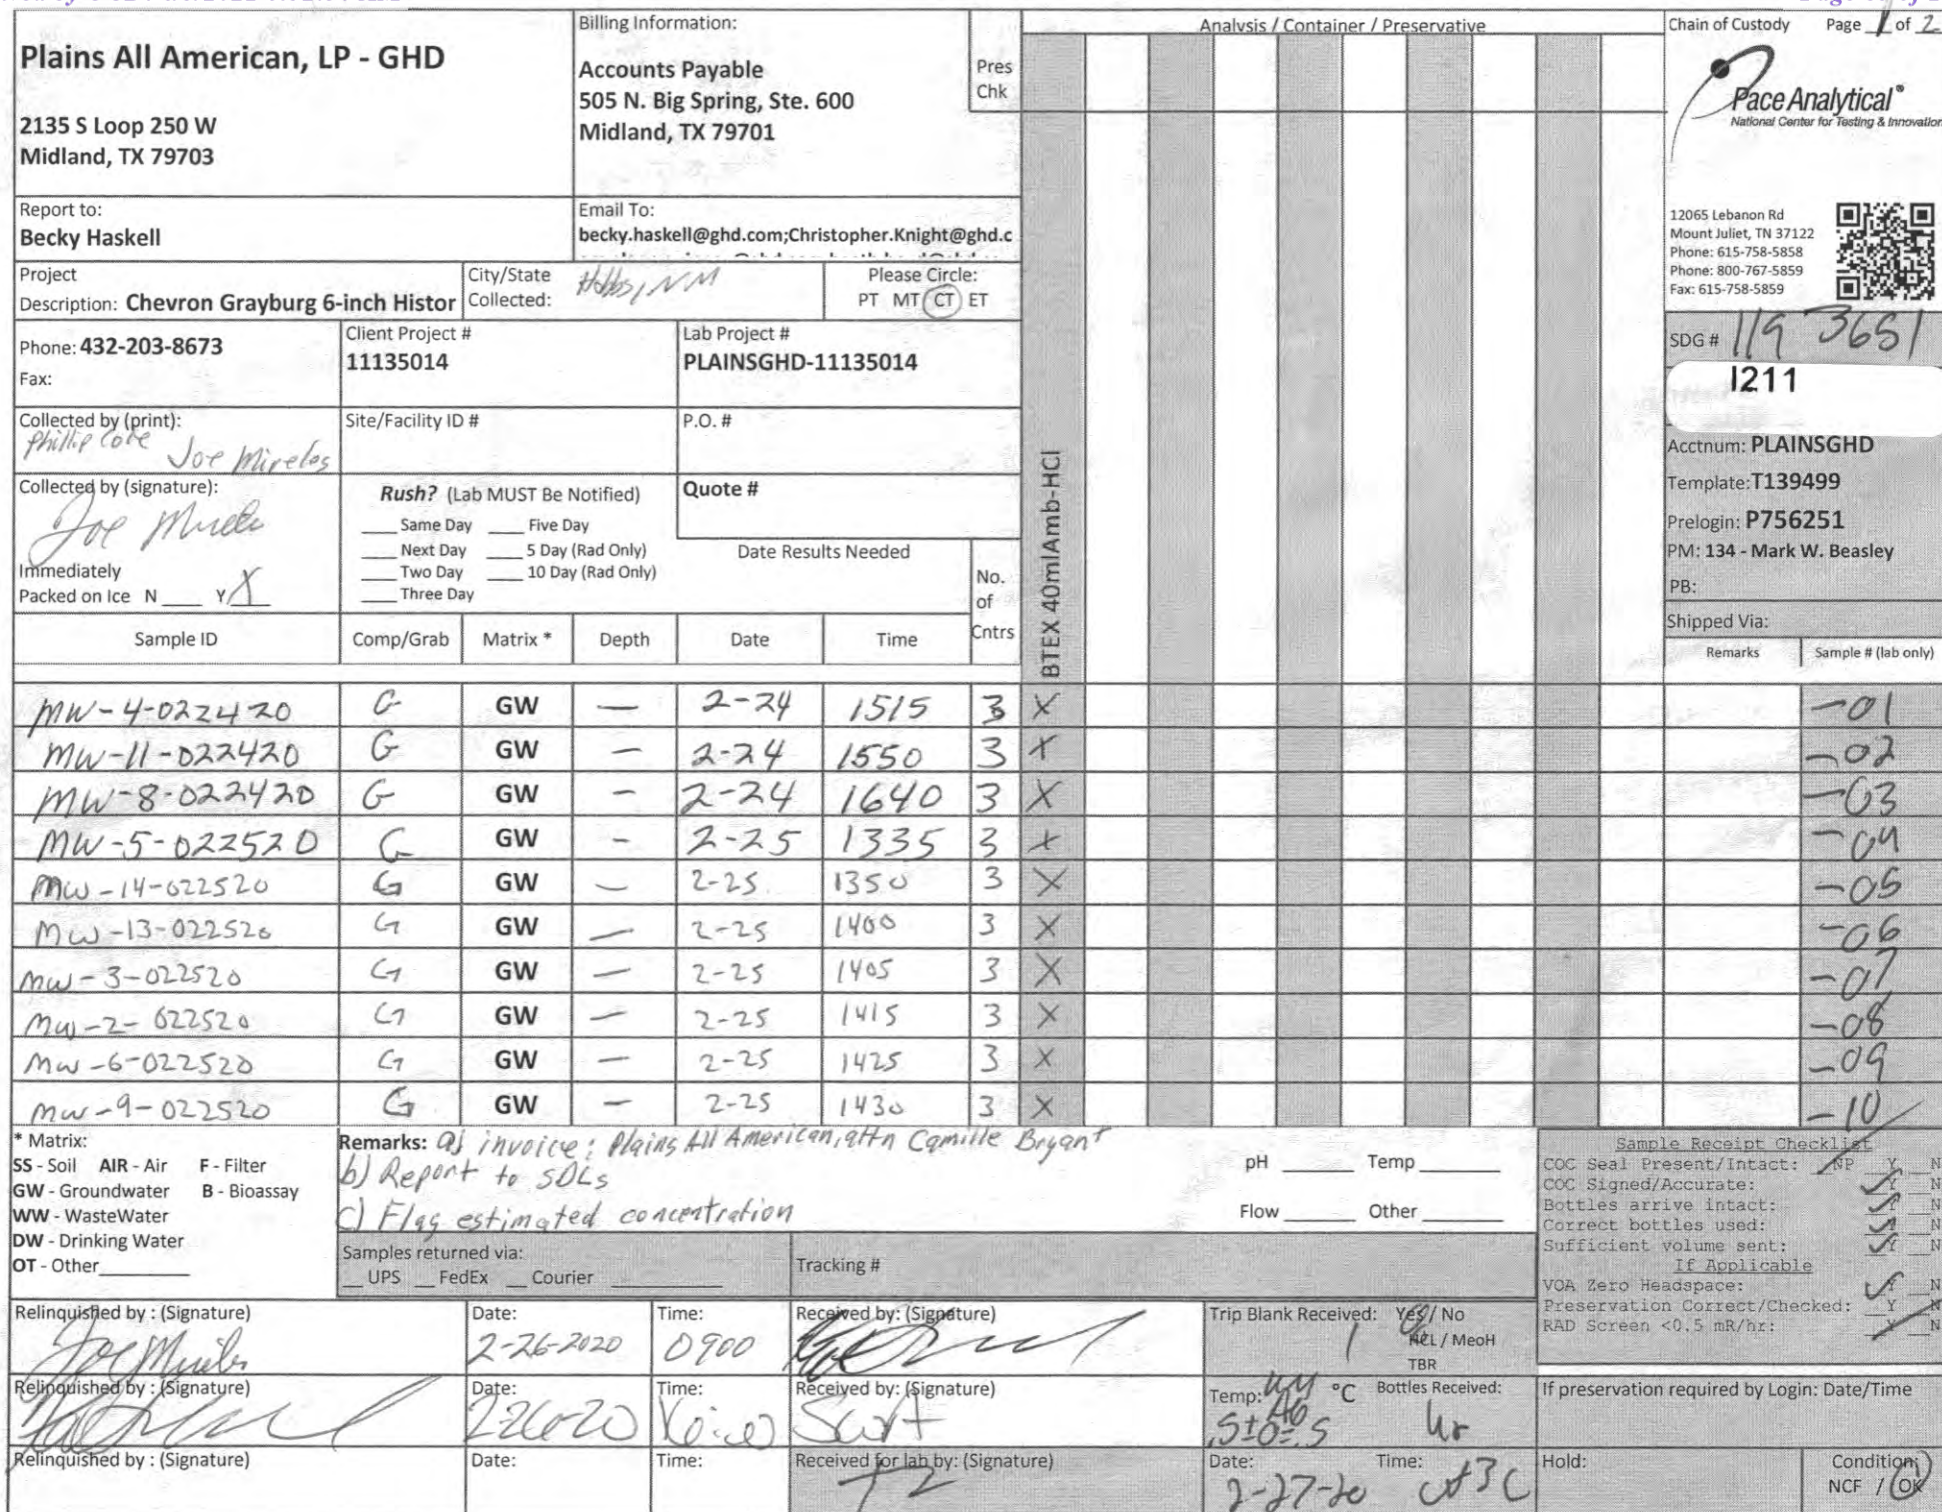 Plains All American, LP - GHD
2135 S Loop 250 W
Midland, TX 79703
Billing Information:
Accounts Payable
505 N. Big Spring, Ste. 600
Midland, TX 79701
Pres
Chk
Analysis / Container / Preservative
Chain of Custody Page 1 of 2
Pace Analytical®
National Center for Testing & Innovation
12065 Lebanon Rd
Mount Juliet, TN 37122
Phone: 615-758-5858
Phone: 800-767-5859
Fax: 615-758-5859
Report to:
Becky Haskell
Email To:
becky.haskell@ghd.com;Christopher.Knight@ghd.c
Project
Description: Chevron Grayburg 6-inch Histor
City/State
Collected: Hobbs, NM
Please Circle:
PT MT CT ET
Phone: 432-203-8673
Fax:
Client Project #
11135014
Lab Project #
PLAINSGHD-11135014
SDG # 119 3651
I211
Collected by (print):
Phillip Cole Joe Mireles
Site/Facility ID #
P.O. #
Acctnum: PLAINSGHD
Template: T139499
Prelogin: P756251
PM: 134 - Mark W. Beasley
PB:
Shipped Via:
Collected by (signature):
Joe Mireles
Immediately
Packed on Ice N ___ Y X
Rush? (Lab MUST Be Notified)
___ Same Day ___ Five Day
___ Next Day ___ 5 Day (Rad Only)
___ Two Day ___ 10 Day (Rad Only)
___ Three Day
Quote #
Date Results Needed
No.
of
Cntrs
BTEX 40mlAmb-HCl
Sample ID Comp/Grab Matrix * Depth Date Time Remarks Sample # (lab only)
MW-4-022420 G GW — 2-24 1515 3 X -01
MW-11-022420 G GW — 2-24 1550 3 X -02
MW-8-022420 G GW — 2-24 1640 3 X -03
MW-5-022520 G GW — 2-25 1335 3 X -04
MW-14-022520 G GW — 2-25 1350 3 X -05
MW-13-022520 G GW — 2-25 1400 3 X -06
MW-3-022520 G GW — 2-25 1405 3 X -07
MW-2-022520 G GW — 2-25 1415 3 X -08
MW-6-022520 G GW — 2-25 1425 3 X -09
MW-9-022520 G GW — 2-25 1430 3 X -10
* Matrix:
SS - Soil AIR - Air F - Filter
GW - Groundwater B - Bioassay
WW - WasteWater
DW - Drinking Water
OT - Other
Remarks: a) invoice: Plains All American, attn Camille Bryant
b) Report to SDLs
c) Flag estimated concentration
pH ___ Temp ___
Flow ___ Other ___
Samples returned via:
__ UPS __ FedEx __ Courier
Tracking #
Sample Receipt Checklist
COC Seal Present/Intact: NP Y N
COC Signed/Accurate: Y N
Bottles arrive intact: Y N
Correct bottles used: Y N
Sufficient volume sent: Y N
If Applicable
VOA Zero Headspace: Y N
Preservation Correct/Checked: Y N
RAD Screen <0.5 mR/hr: Y N
Relinquished by : (Signature)
Joe Mireles
Date:
2-26-2020
Time:
0900
Received by: (Signature)
Trip Blank Received: Yes / No
1 HCL / MeoH
TBR
Relinquished by : (Signature)
Date:
2-26-20
Time:
Received by: (Signature)
Temp: °C
.5±0=.5
Bottles Received:
If preservation required by Login: Date/Time
Relinquished by : (Signature)
Date:
Time:
Received for lab by: (Signature)
Date:
2-27-20
Time:
Hold:
Condition:
NCF / OK